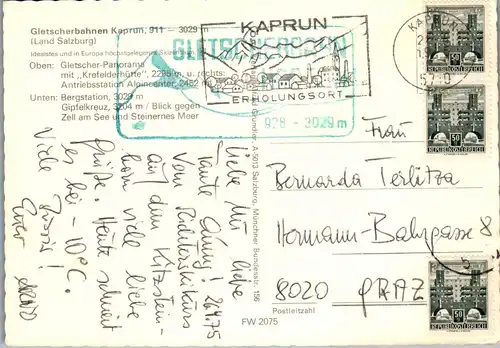 Gletscherbahnen Kaprun, 911 – 3029 m
(Land Salzburg)
Idealstes und in Europa höchstgelegenes
Oben: Gletscher-Panorama
mit „Krefelderhütte", 2295 m, u. rechts:
Antriebsstation Alpincenter, 2452 m
Unten: Bergstation, 3029 m
Gipfelkreuz, 3204 m / Blick gegen
Zell am See und Steinernes Meer
KAPRUN
ERHOLUNGSORT
928 - 3029 m
KAPRUN
A-5013 Salzburg, Münchner Bundesstr. 156
FW 2075
Postleitzahl
50
REPUBLIK ÖSTERREICH
50
REPUBLIK ÖSTERREICH
50
REPUBLIK ÖSTERREICH
Frau
Bernarda Terlitza
Hermann-Bahrgasse 8
8020 GRAZ
Liebe Mu, liebe
Tante 26.4.75
Vom
auf dem Kitzstein-
horn viele liebe
Grüße. Heute schneit
es bei -10°C.
Viele Bussis!
Euer